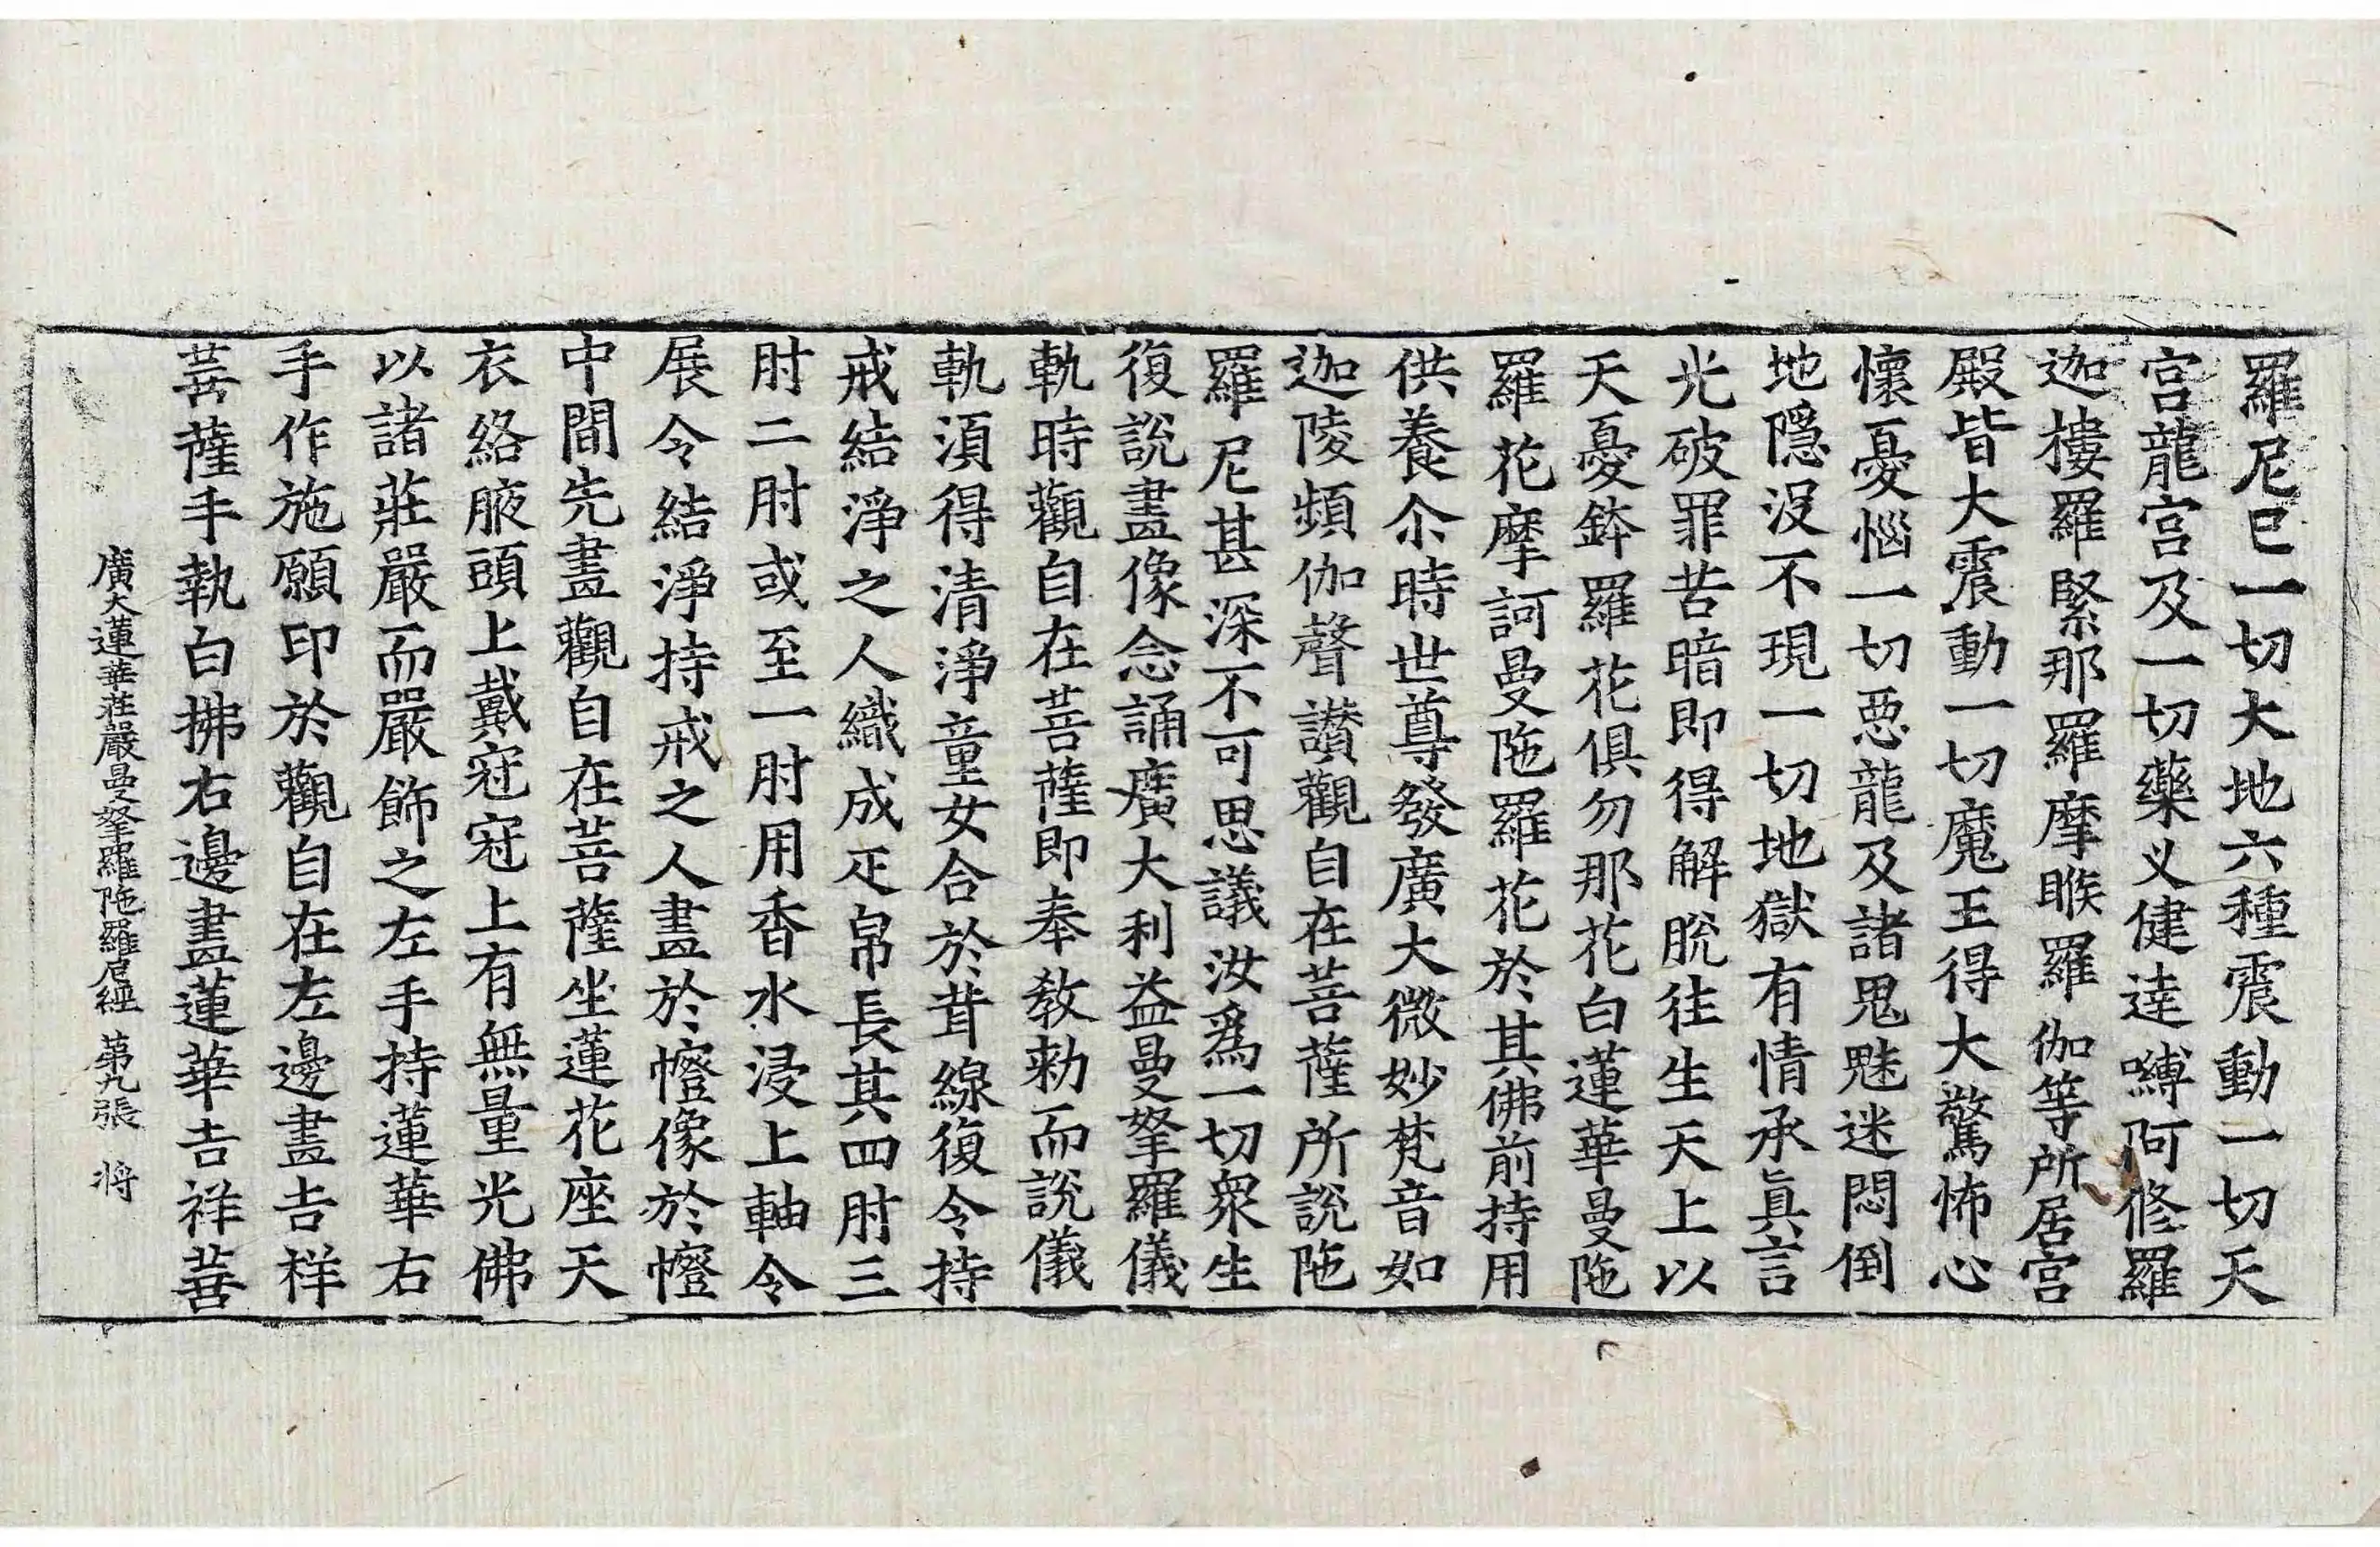 羅尼已一切大地六種震動一切天
宮龍宮及一切藥义健達嚩阿修羅
迦樓羅緊那羅摩睺羅伽等所居宮
殿皆大震動一切魔王得大驚怖心
懷憂惱一切惡龍及諸鬼魅迷悶倒
地隱没不現一切地獄有情承眞言
光破罪苦暗即得解脫往生天上以
天憂鉢羅花俱勿那花白蓮華曼陁
羅花摩訶曼陁羅花於其佛前持用
供養尒時世尊發廣大微妙梵音如
迦陵頻伽聲讃觀自在菩薩所說陁
羅尼甚深不可思議汝爲一切衆生
復說畫像念誦廣大利益曼拏羅儀
軌時觀自在菩薩即奉教勑而說儀
軌須得清淨童女合於茸線復令持
戒結淨之人織成疋帛長其四肘三
肘二肘或至一肘用香水浸上軸令
展令結淨持戒之人畫於㡧像於㡧
中間先畫觀自在菩薩坐蓮花座天
衣絡腋頭上戴冠冠上有無量光佛
以諸莊嚴而嚴飾之左手持蓮華右
手作施願印於觀自在左邊畫吉祥
菩薩手執白拂右邊畫蓮華吉祥菩
廣大蓮華莊嚴曼拏羅陁羅尼經 第九張 将